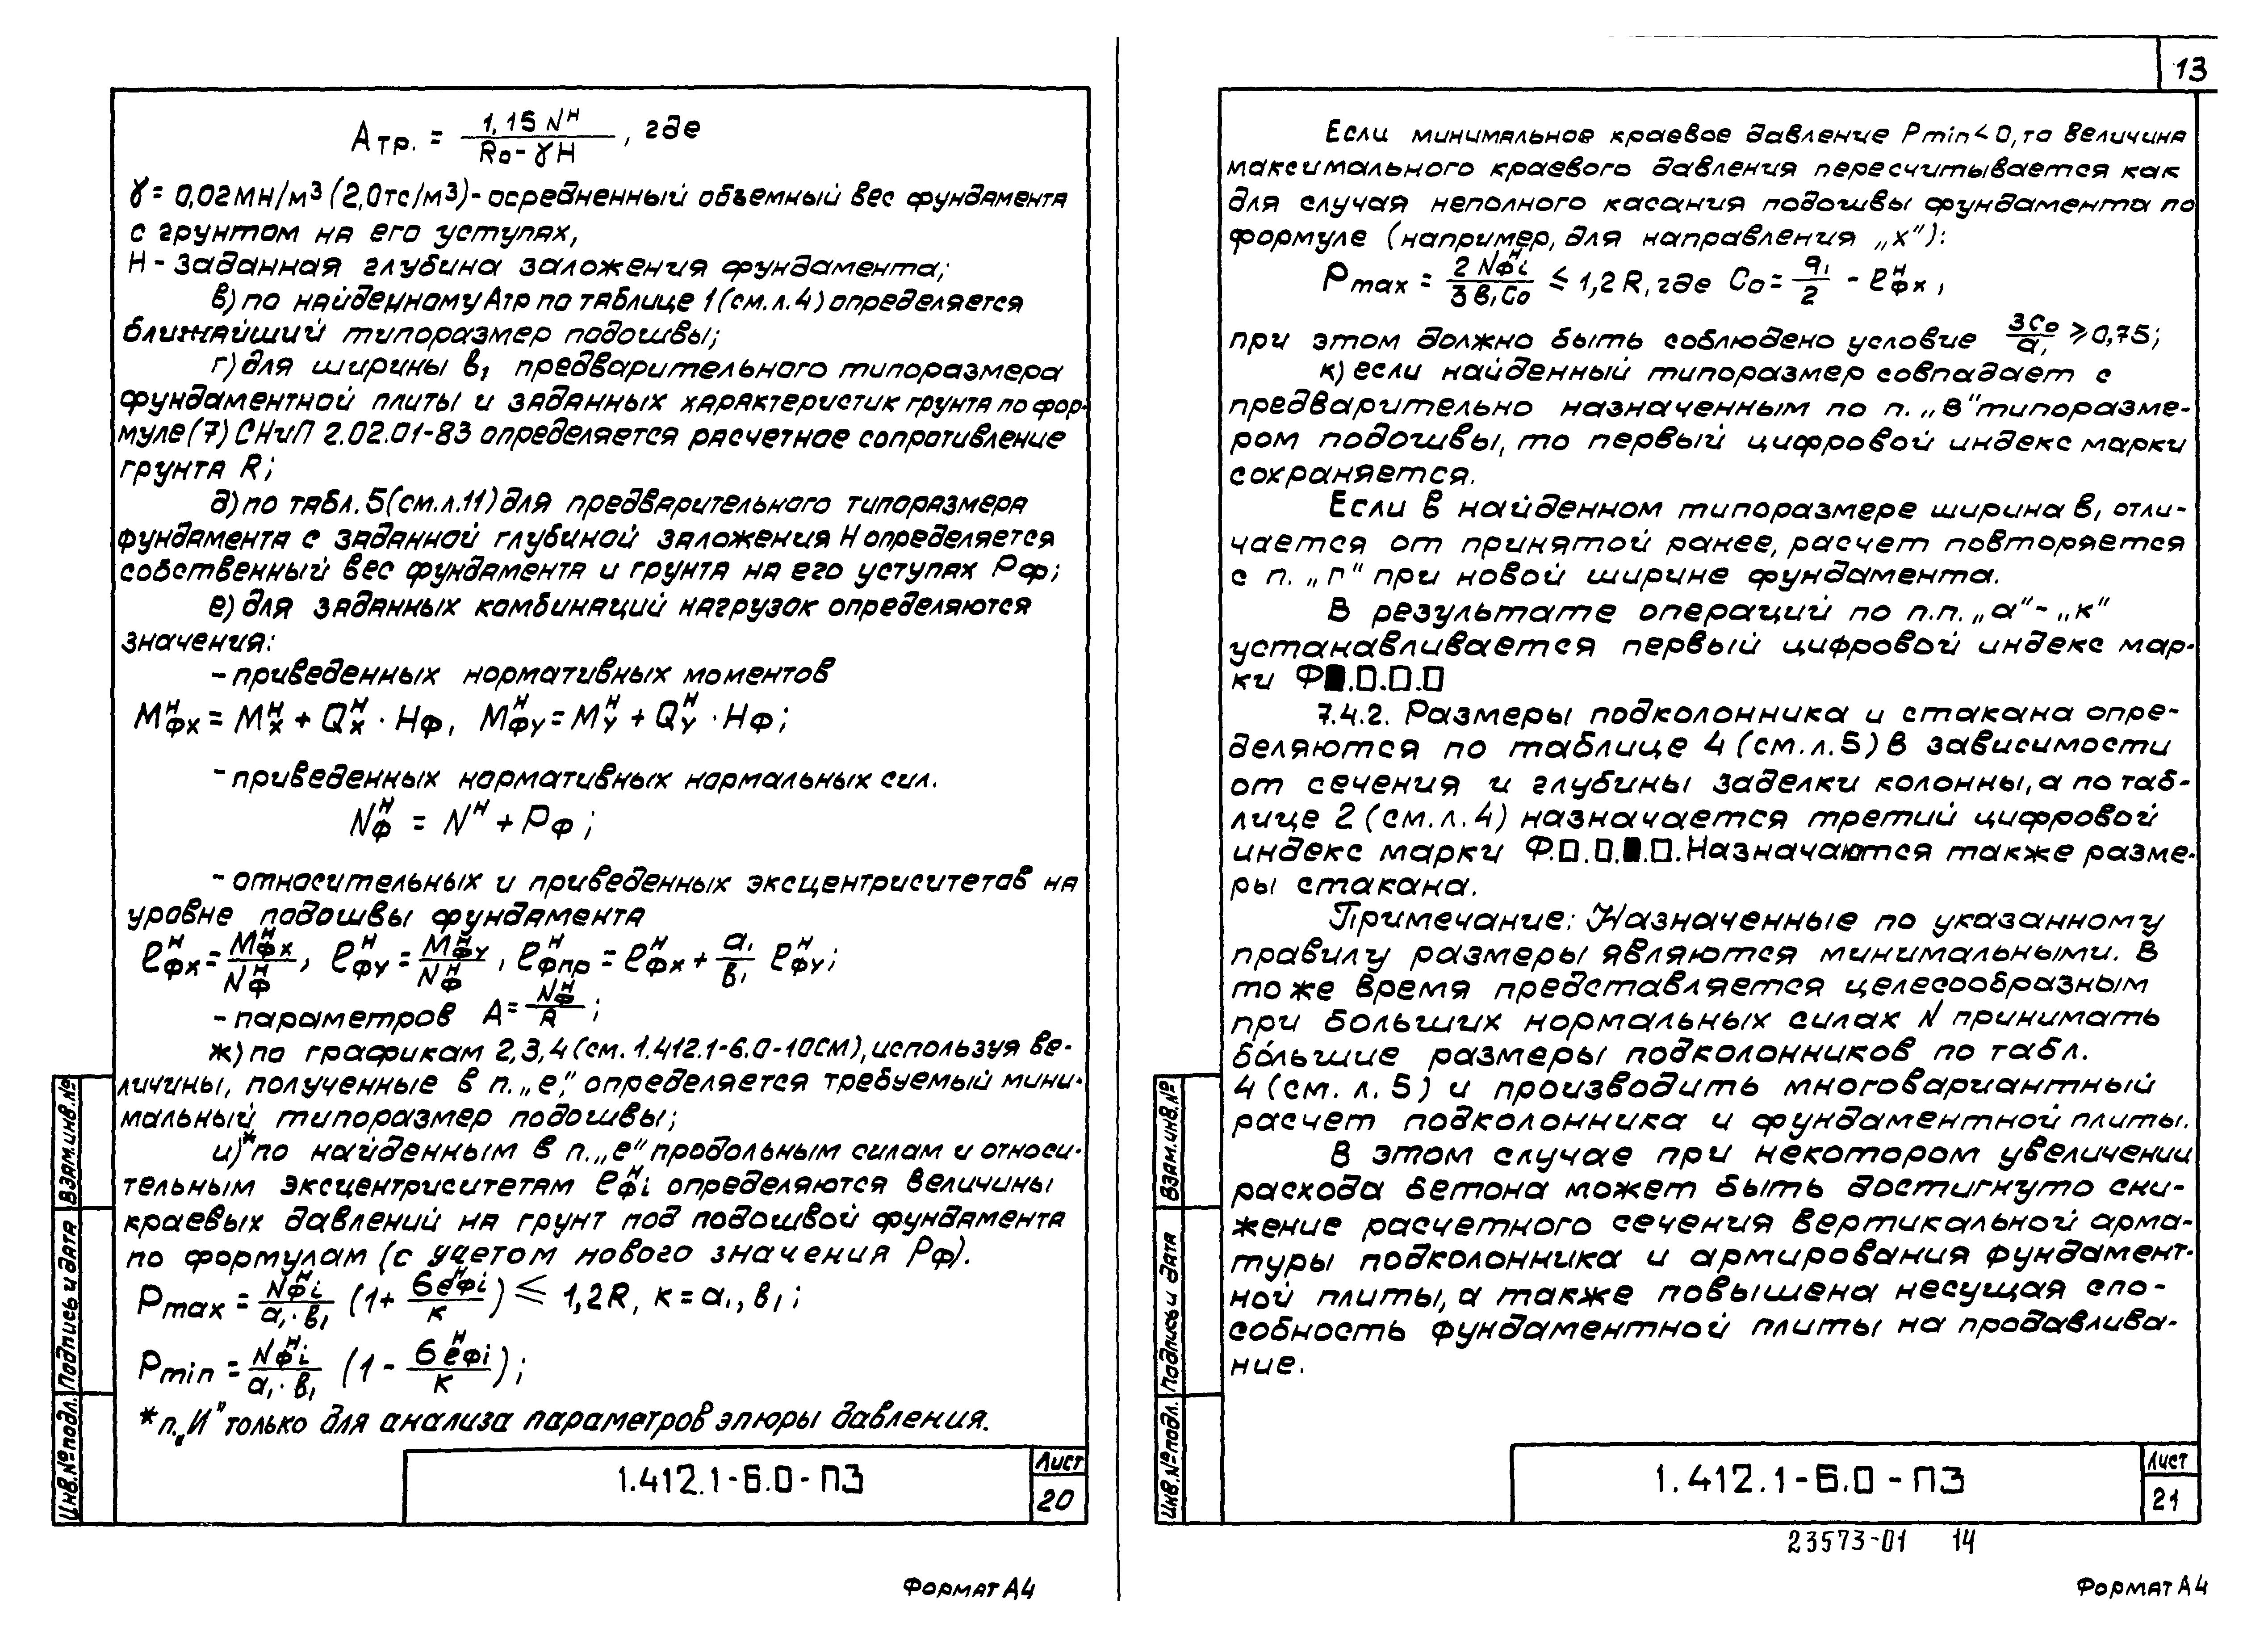 Aтр. = 1,15 Nᴴ / (Ro - γH), где
γ = 0,02 МН/м³ (2,0 тс/м³) - осредненный объемный вес фундамента
с грунтом на его уступах,
H - заданная глубина заложения фундамента;
в) по найденному Aтр по таблице 1 (см. л. 4) определяется
ближайший типоразмер подошвы;
г) для ширины в₁ предварительного типоразмера
фундаментной плиты и заданных характеристик грунта по фор-
муле (7) СНиП 2.02.01-83 определяется расчетное сопротивление
грунта R;
д) по табл. 5 (см. л. 11) для предварительного типоразмера
фундамента с заданной глубиной заложения H определяется
собственный вес фундамента и грунта на его уступах Pф;
е) для заданных комбинаций нагрузок определяются
значения:
- приведенных нормативных моментов
Mᴴфх = Mᴴх + Qᴴх · Hф, Mᴴфу = Mᴴу + Qᴴу · Hф;
- приведенных нормативных нормальных сил.
Nᴴф = Nᴴ + Pф;
- относительных и приведенных эксцентриситетов на
уровне подошвы фундамента
eᴴфх = Mᴴфх / Nᴴф, eᴴфу = Mᴴфу / Nᴴф, eᴴфпр = eᴴфх + a₁/в₁ eᴴфу;
- параметров A = Nᴴф / R;
ж) по графикам 2, 3, 4 (см. 1.412.1-6.0-10СМ), используя ве-
личины, полученные в п. „е”, определяется требуемый мини-
мальный типоразмер подошвы;
и)* по найденным в п. „е” продольным силам и относи-
тельным эксцентриситетам eᴴфi определяются величины
краевых давлений на грунт под подошвой фундамента
по формулам (с учетом нового значения Pф).
Pmax = Nᴴфi / (a₁·в₁) (1 + 6eᴴфi / к) ≤ 1,2R, к = a₁, в₁;
Pmin = Nᴴфi / (a₁·в₁) (1 - 6eᴴфi / к);
* п. „И” только для анализа параметров эпюры давления.
Инв. № подл. Подпись и дата Взам. инв. №
1.412.1-6.0-ПЗ
Лист
20
Формат А4
13
Если минимальное краевое давление Pmin < 0, то величина
максимального краевого давления пересчитывается как
для случая неполного касания подошвы фундамента по
формуле (например, для направления „х”):
Pmax = 2 Nᴴфi / (3 в₁ Co) ≤ 1,2 R, где Co = a₁/2 - eᴴфх,
при этом должно быть соблюдено условие 3Co / a₁ ≥ 0,75;
к) если найденный типоразмер совпадает с
предварительно назначенным по п. „в” типоразме-
ром подошвы, то первый цифровой индекс марки
сохраняется.
Если в найденном типоразмере ширина в₁ отли-
чается от принятой ранее, расчет повторяется
с п. „г” при новой ширине фундамента.
В результате операций по п.п. „а” - „к”
устанавливается первый цифровой индекс мар-
ки Ф■.□.□.□
7.4.2. Размеры подколонника и стакана опре-
деляются по таблице 4 (см. л. 5) в зависимости
от сечения и глубины заделки колонны, а по таб-
лице 2 (см. л. 4) назначается третий цифровой
индекс марки Ф.□.□.■.□. Назначаются также разме-
ры стакана.
Примечание: Назначенные по указанному
правилу размеры являются минимальными. В
то же время представляется целесообразным
при больших нормальных силах N принимать
бо́льшие размеры подколонников по табл.
4 (см. л. 5) и производить многовариантный
расчет подколонника и фундаментной плиты.
В этом случае при некотором увеличении
расхода бетона может быть достигнуто сни-
жение расчетного сечения вертикальной арма-
туры подколонника и армирования фундамент-
ной плиты, а также повышена несущая спо-
собность фундаментной плиты на продавлива-
ние.
Инв. № подл. Подпись и дата Взам. инв. №
1.412.1-6.0-ПЗ
Лист
21
23573-01 14
Формат А4